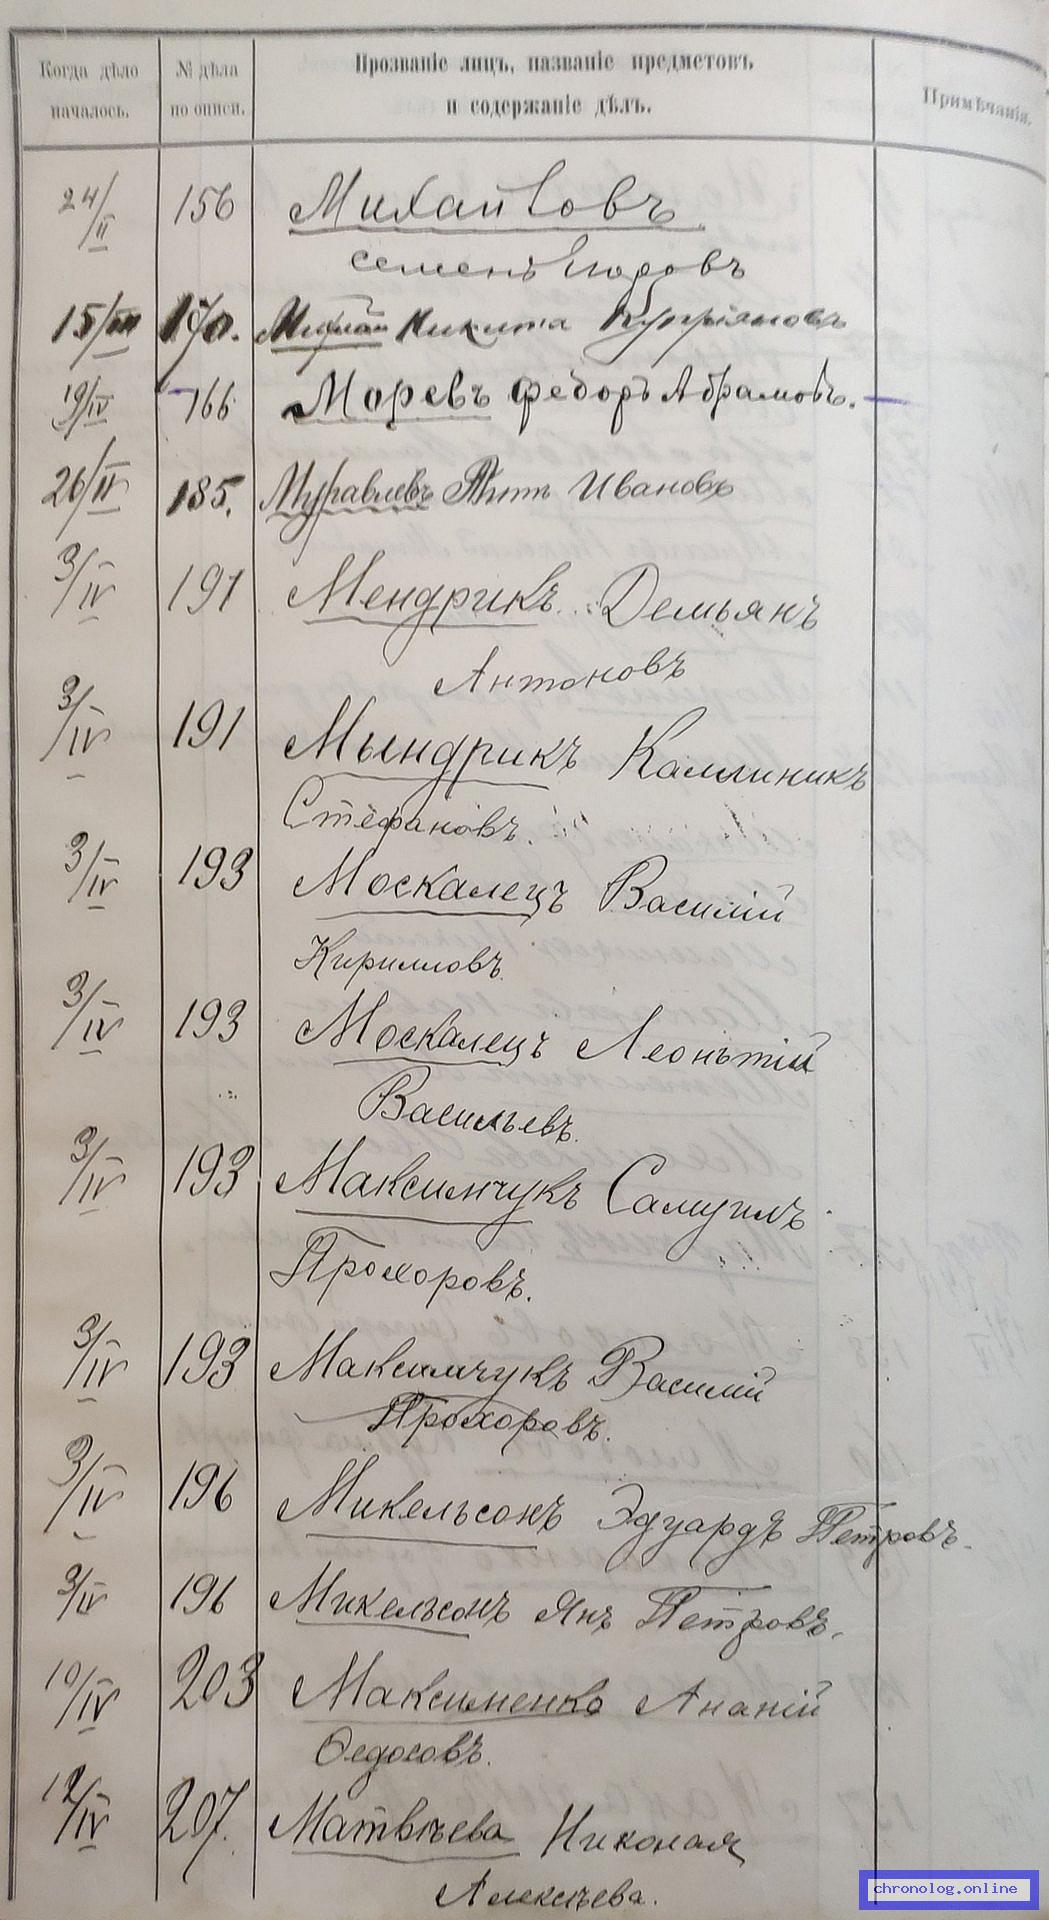 Когда дѣло началось.
№ дѣла по описи.
Прозваніе лицъ, названіе предметовъ и содержаніе дѣлъ.
Примѣчанія.
24/II 156 Михайловъ
Семенъ Егоровъ
15/III 170. Никита Купріяновъ
19/IV 166 Моревъ Федоръ Абрамовъ.
26/II 185. Муравлевъ Титъ Ивановъ
3/IV 191 Мендрикъ Демьянъ
Антоновъ
3/IV 191 Мындрикъ Каллиникъ
Стефановъ.
3/IV 193 Москалецъ Василій
Кирилловъ.
3/IV 193 Москалецъ Леонътій
Васильевъ.
3/IV 193 Максимчукъ Самуилъ
Прохоровъ.
3/IV 193 Максимчукъ Василій
Прохоровъ.
3/IV 196 Микельсонъ Эдуардъ Петровъ.
3/IV 196 Микельсонъ Янъ Петровъ.
10/IV 203 Максименко Ананій
Ѳедосовъ.
12/IV 207. Матвѣева Николая
Алексѣева.
chronolog.online